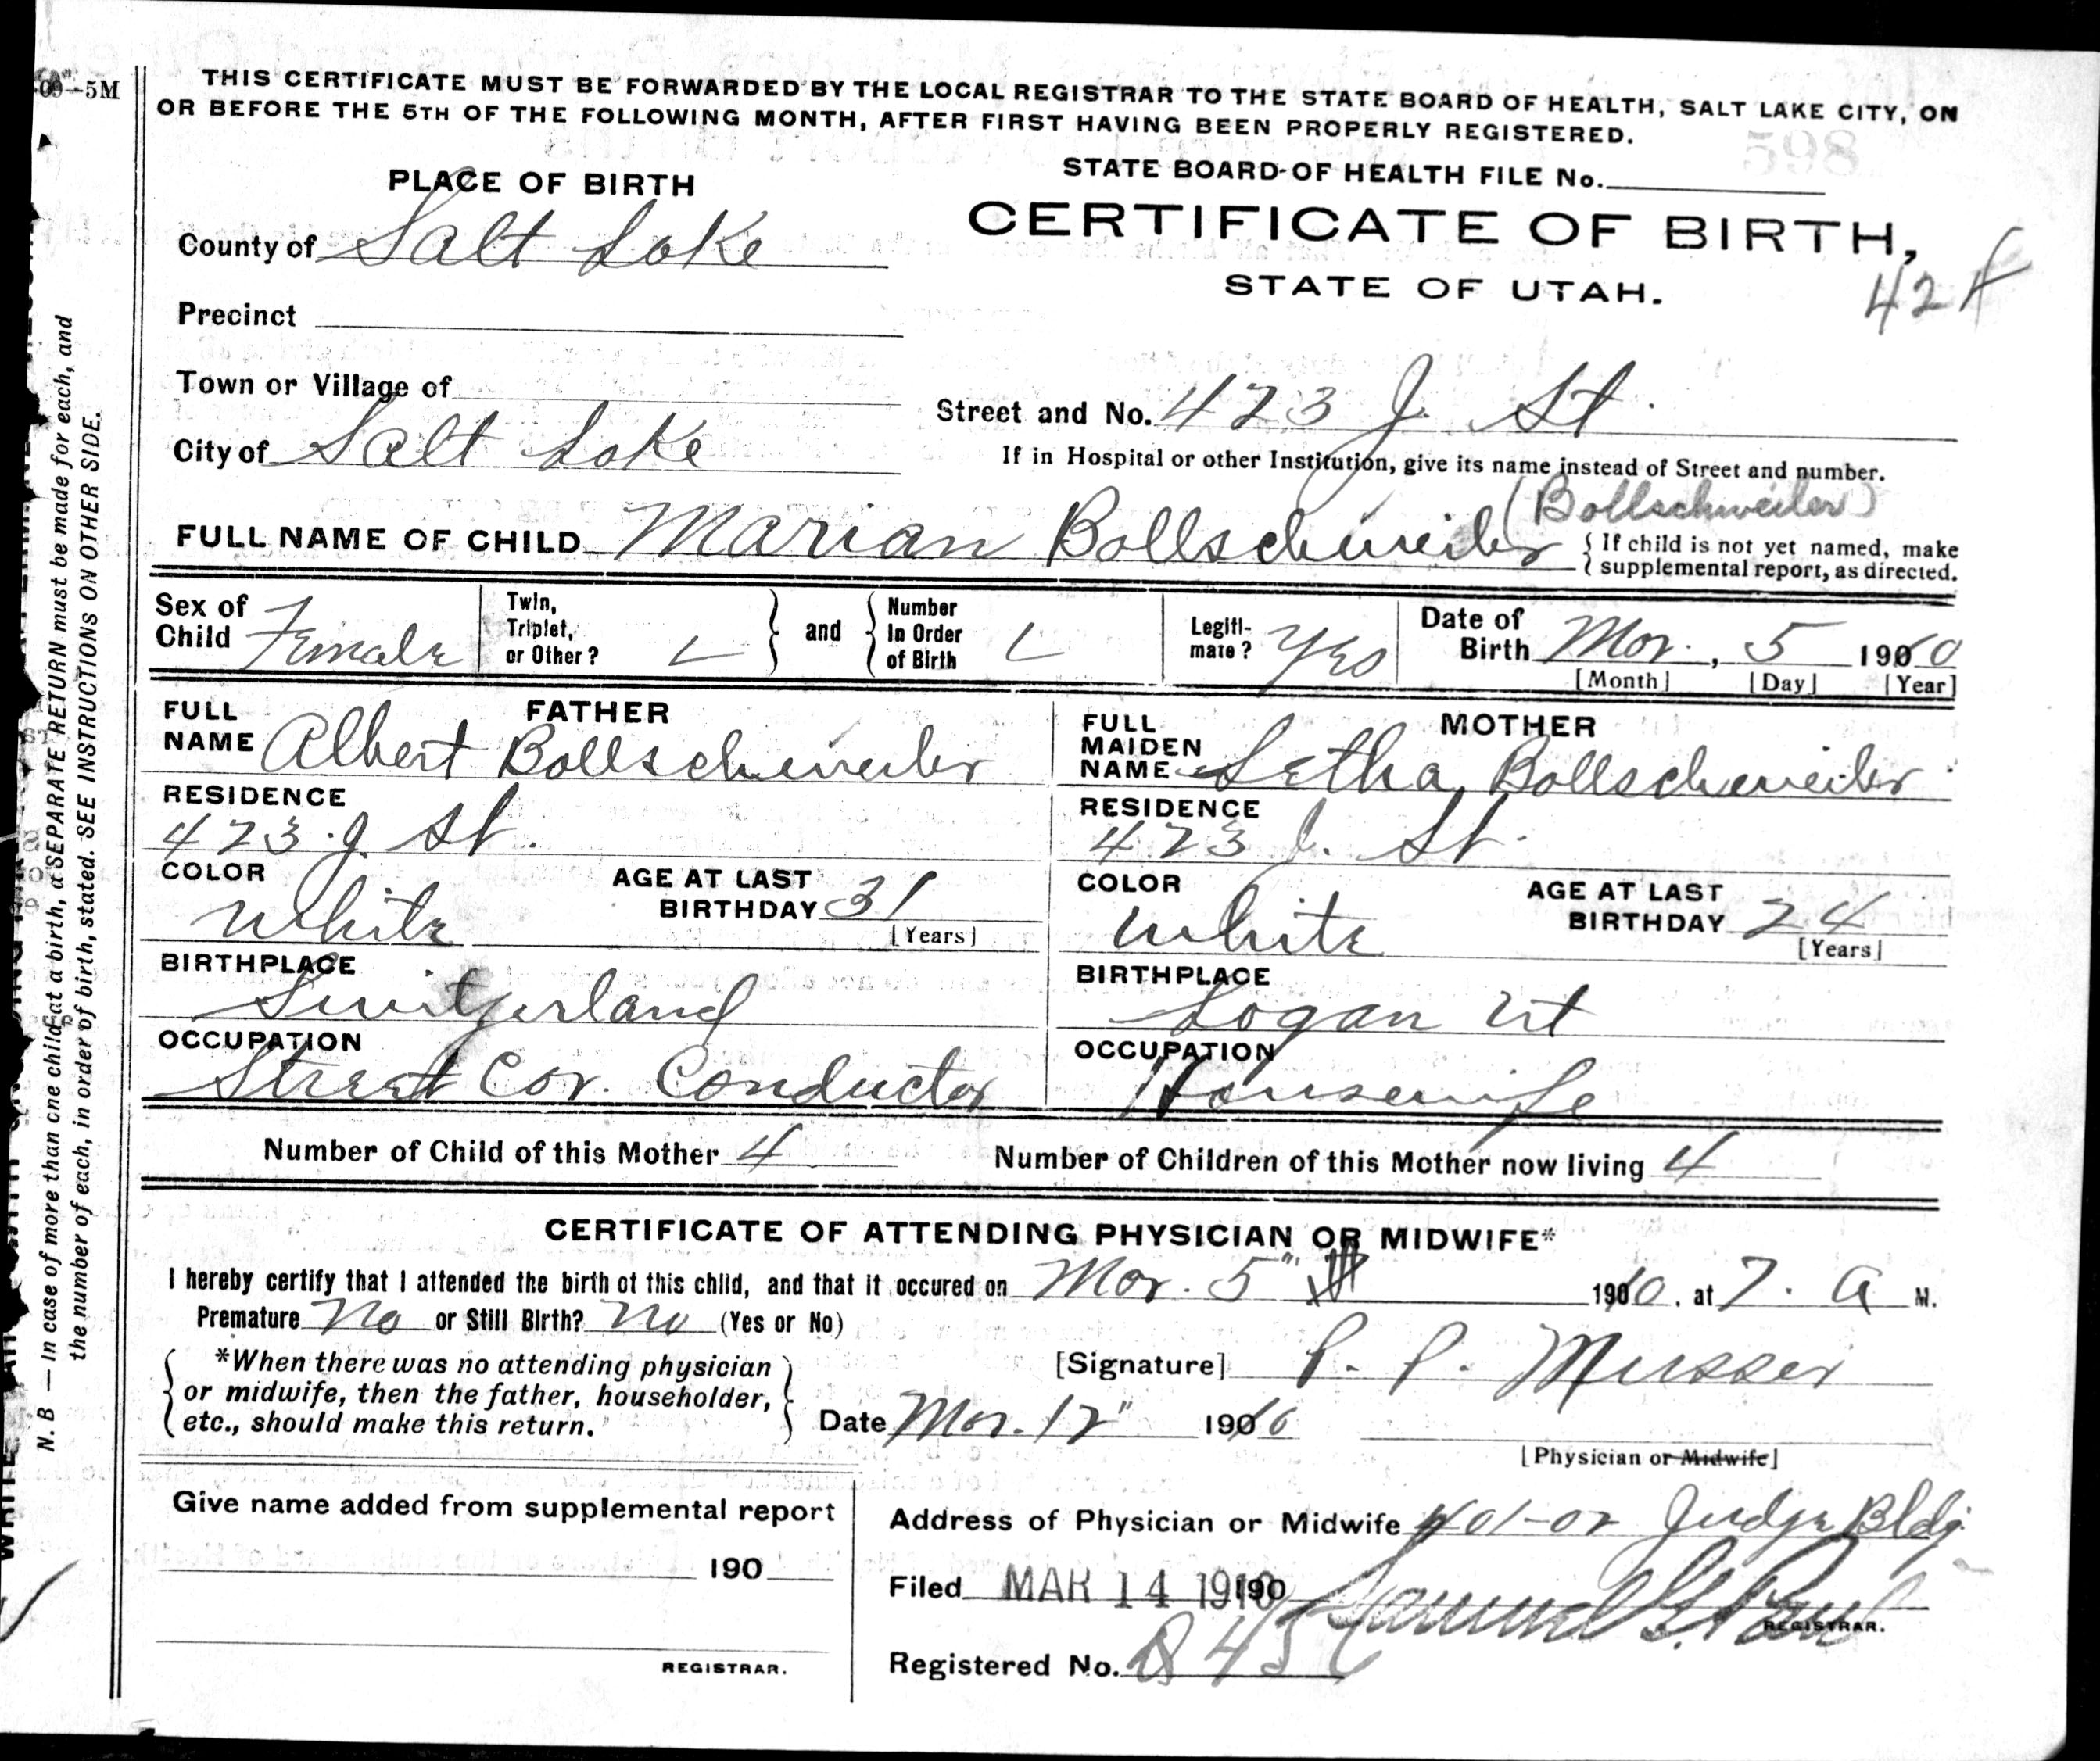 09-5M
THIS CERTIFICATE MUST BE FORWARDED BY THE LOCAL REGISTRAR TO THE STATE BOARD OF HEALTH, SALT LAKE CITY, ON
OR BEFORE THE 5TH OF THE FOLLOWING MONTH, AFTER FIRST HAVING BEEN PROPERLY REGISTERED.
598
PLACE OF BIRTH
STATE BOARD OF HEALTH FILE No.
County of Salt Lake
CERTIFICATE OF BIRTH,
STATE OF UTAH.
42 f
Precinct
Town or Village of
Street and No. 423 J. St.
City of Salt Lake
If in Hospital or other Institution, give its name instead of Street and number.
(Bollschweiler)
FULL NAME OF CHILD Marian Bollschweiler
{ If child is not yet named, make
supplemental report, as directed.
Sex of Child Female
Twin, Triplet, or Other?
and
Number In Order of Birth
Legitimate? Yes
Date of Birth Mar. , 5 1910
[Month] [Day] [Year]
FATHER
FULL NAME Albert Bollschweiler
MOTHER
FULL MAIDEN NAME Letha Bollschweiler
RESIDENCE
423 J. St.
RESIDENCE
423 J. St.
COLOR
White
AGE AT LAST BIRTHDAY 31
[Years]
COLOR
White
AGE AT LAST BIRTHDAY 24
[Years]
BIRTHPLACE
Switzerland
BIRTHPLACE
Logan Ut
OCCUPATION
Street Car Conductor
OCCUPATION
Housewife
Number of Child of this Mother 4
Number of Children of this Mother now living 4
CERTIFICATE OF ATTENDING PHYSICIAN OR MIDWIFE*
I hereby certify that I attended the birth of this child, and that it occured on Mar. 5" 1910, at 7. A M.
Premature No or Still Birth? No (Yes or No)
*When there was no attending physician
or midwife, then the father, householder,
etc., should make this return.
[Signature] P. P. Musser
Date Mar. 12" 1910
[Physician or Midwife]
Give name added from supplemental report
190
REGISTRAR.
Address of Physician or Midwife 401-02 Judge Bldg
Filed MAR 14 1910 190
REGISTRAR.
Registered No.
N. B — In case of more than one child at a birth, a SEPARATE RETURN must be made for each, and
the number of each, in order of birth, stated. SEE INSTRUCTIONS ON OTHER SIDE.